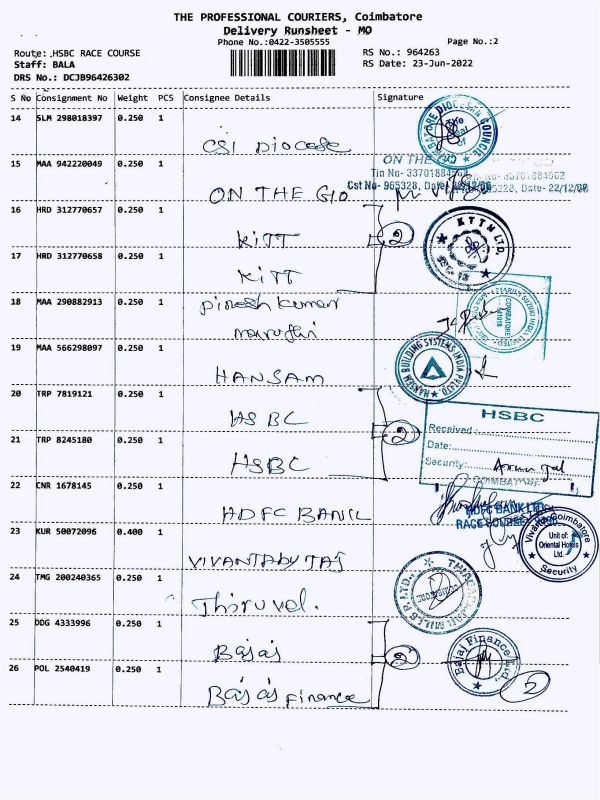 THE PROFESSIONAL COURIERS, Coimbatore
Delivery Runsheet - MO
Phone No.:0422-3505555
Page No.:2
Route: HSBC RACE COURSE
RS No.: 964263
Staff: BALA
RS Date: 23-Jun-2022
DRS No.: DCJB96426302
S No Consignment No Weight PCS Consignee Details Signature
14 SLM 298018397 0.250 1
CSI Diocese
15 MAA 942220049 0.250 1
ON THE GO
Tin No- 33701884562
Cst No- 965328, Date- 22/12/00
ON THE GIO
16 HRD 312770657 0.250 1
KiTT
2
KTTM LTD.
17 HRD 312770658 0.250 1
KiTT
18 MAA 290882913 0.250 1
Dinesh kumar
maruthi
COIMBATORE
641018
19 MAA 566298097 0.250 1
HANSAM
HANSEN BUILDING SYSTEMS INDIA PVT LTD.
20 TRP 7819121 0.250 1
HSBC
2
21 TRP 8245180 0.250 1
HSBC
HSBC
Received:
Date:
Security:
COIMBATORE
22 CNR 1678145 0.250 1
HDFC BANK
HDFC BANK LTD.
RACE COURSE
23 KUR 50072096 0.400 1
VIVANTABY TAJ
Vivanta Coimbatore
Unit of:
Oriental Hotels
Ltd.
Security
24 TMG 200240365 0.250 1
Thiruvel.
25 DDG 4333996 0.250 1
Bajaj
2
Bajaj Finance Ltd.
26 POL 2540419 0.250 1
Bajaj finance
2